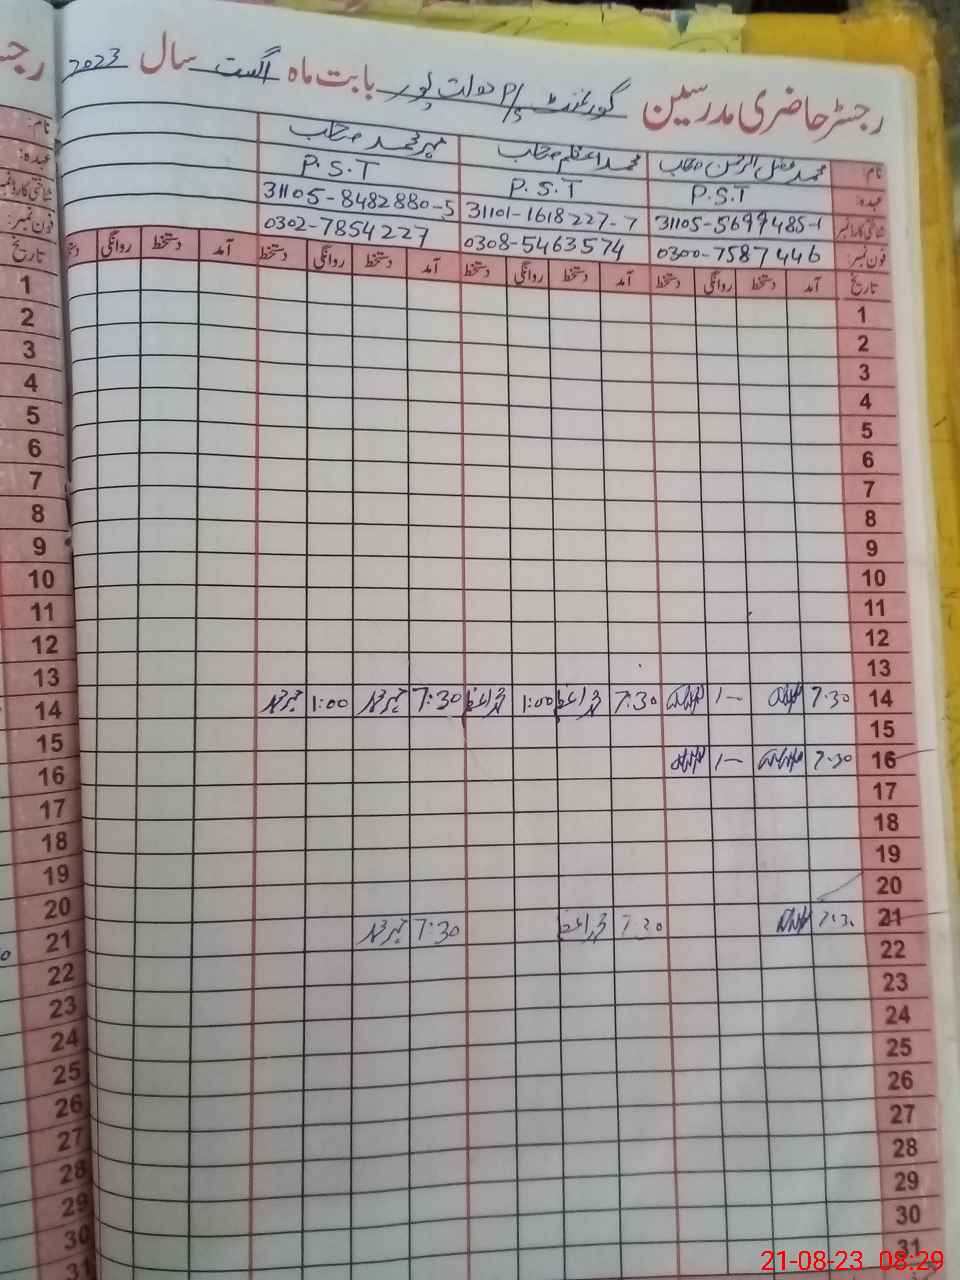 رجسٹر حاضری مدرسین گورنمنٹ P/S دولت پور بابت ماہ اگست سال 2023
نام: محمد فضل الرحمن صاحب محمد اعظم صاحب مہر محمد صاحب
عہدہ: P.S.T P.S.T P.S.T
شناختی کارڈ نمبر 31105-5699485-1 31101-1618227-7 31105-8482880-5
فون نمبر: 0300-7587446 0308-5463574 0302-7854227
تاریخ آمد دستخط روانگی دستخط آمد دستخط روانگی دستخط آمد دستخط روانگی دستخط آمد دستخط روانگی
1
2
3
4
5
6
7
8
9
10
11
12
13
14 7:30 1- 7:30 1:00 7:30 1:00
15
16 7:30 1-
17
18
19
20
21 7:30 7:30 7:30
22
23
24
25
26
27
28
29
30
31
رجس
نام:
عہدہ:
شناختی کارڈ نمبر
فون نمبر:
تاریخ
1
2
3
4
5
6
7
8
9
10
11
12
13
14
15
16
17
18
19
20
21
22
23
24
25
26
27
28
29
30
31
21-08-23 08:29